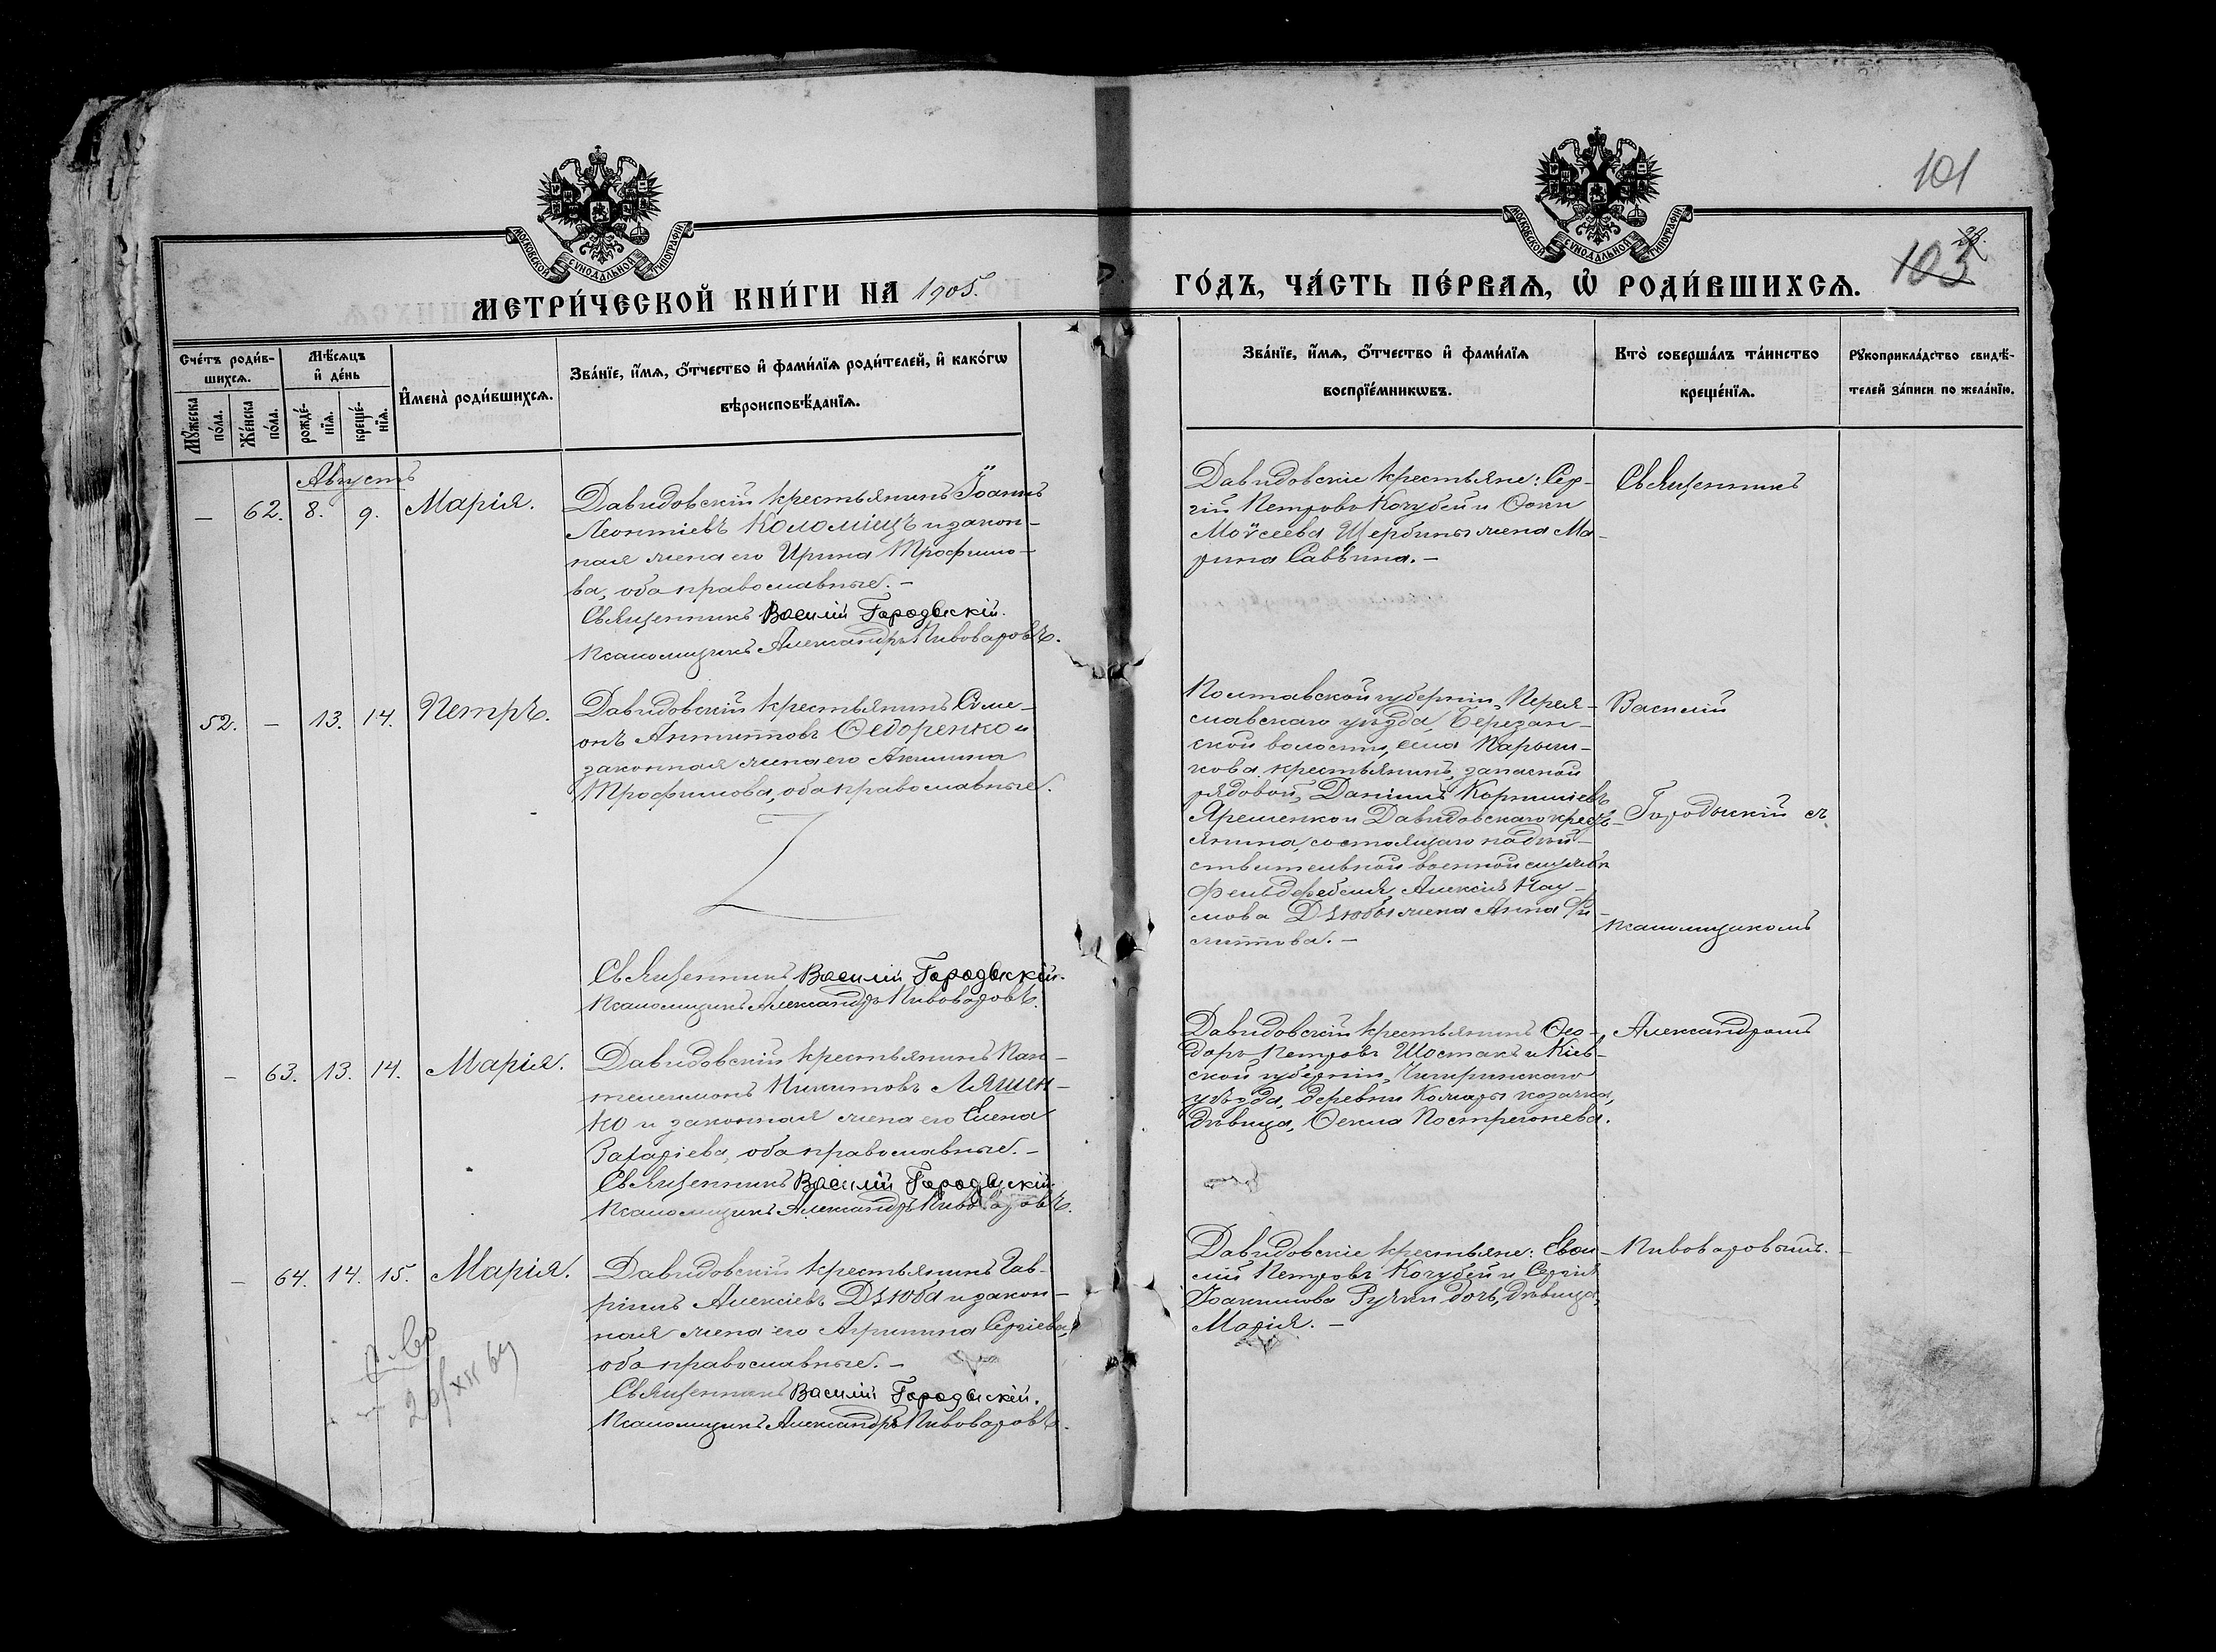 101
МОСКОВСКОЙ СѴНОДАЛЬНОЙ ТИПОГРАФІИ
МОСКОВСКОЙ СѴНОДАЛЬНОЙ ТИПОГРАФІИ
103
МЕТРИ́ЧЕСКОЙ КНИ́ГИ НА 1905.
ГО́ДЪ, ЧА́СТЬ ПЕ́РВАѦ, Ѡ҆ РОДИ́ВШИХСѦ.
Сче́тъ роди́в-
шихсѧ.
Мꙋ́жеска по́ла.
Же́нска по́ла.
Мѣ́сѧцъ
и҆ де́нь
рожде́-
нїѧ.
креще́-
нїѧ.
И҆мена̀ роди́вшихсѧ.
Зва́нїе, и҆́мѧ, ѻ҆́тчество и҆ фами́лїѧ роди́телей, и҆ како́гѡ
вѣроисповѣ́данїѧ.
Зва́нїе, и҆́мѧ, ѻ҆́тчество и҆ фами́лїѧ
воспрїе́мникѡвъ.
Кто̀ соверша́лъ та́инство
креще́нїѧ.
Рꙋкоприкла́дство свидѣ́-
телей за́писи по жела́нїю.
Августъ
— 62. 8. 9. Марія.
Давидовскій крестьянинъ Іоаннъ
Леонтіевъ Коломіецъ и закон-
ная жена его Ирина Трофимо-
ва, оба православные. –
Священникъ Василій Городыскій.
Псаломщикъ Александръ Пивоваровъ.
Давидовскіе крестьяне: Сер-
гій Петровъ Кочубей и Ѳоки
Моѵсеева Щербины жена Ма-
рина Саввина. –
Священникъ
52. — 13. 14. Петръ.
Давидовскій крестьянинъ Симе-
онъ Антиповъ Ѳедоренко и
законная жена его Акилина
Трофимова, оба православные.
Священникъ Василій Городыскій.
Псаломщикъ Александръ Пивоваровъ.
Полтавской губерніи, Перея-
славскаго уѣзда, Березан-
ской волости, села Парыш-
кова крестьянинъ, запасной
рядовой, Даніилъ Корниліевъ
Яременко и Давидовскаго кресть-
янина, состоящаго на дѣй-
ствительной военной службѣ
фельдфебеля, Алексія Нау-
мова Дзюбы жена Анна Фи-
липпова. –
Василій
Городыскій съ
псаломщикомъ
— 63. 13. 14. Марія.
Давидовскій крестьянинъ Пан-
телеимонъ Никитовъ Ляшен-
ко и законная жена его Елена
Захаріева, оба православные. –
Священникъ Василій Городыскій.
Псаломщикъ Александръ Пивоваровъ.
Давидовскій крестьянинъ Ѳео-
доръ Петровъ Шостакъ и Кіев-
ской губерніи, Чигиринскаго
уѣзда, деревни Комары козачка,
дѣвица, Ѳекла
Александромъ
— 64. 14. 15. Марія.
Давидовскій крестьянинъ Гав-
ріилъ Алексіевъ Дзюба и закон-
ная жена его Агрипина Сергіева,
оба православные. –
Священникъ Василій Городыскій.
Псаломщикъ Александръ Пивоваровъ.
Давидовскіе крестьяне:
Петровъ Кочубей и Сергія
Іоакимова дочь, дѣвица,
Марія. –
Пивоваровымъ. –